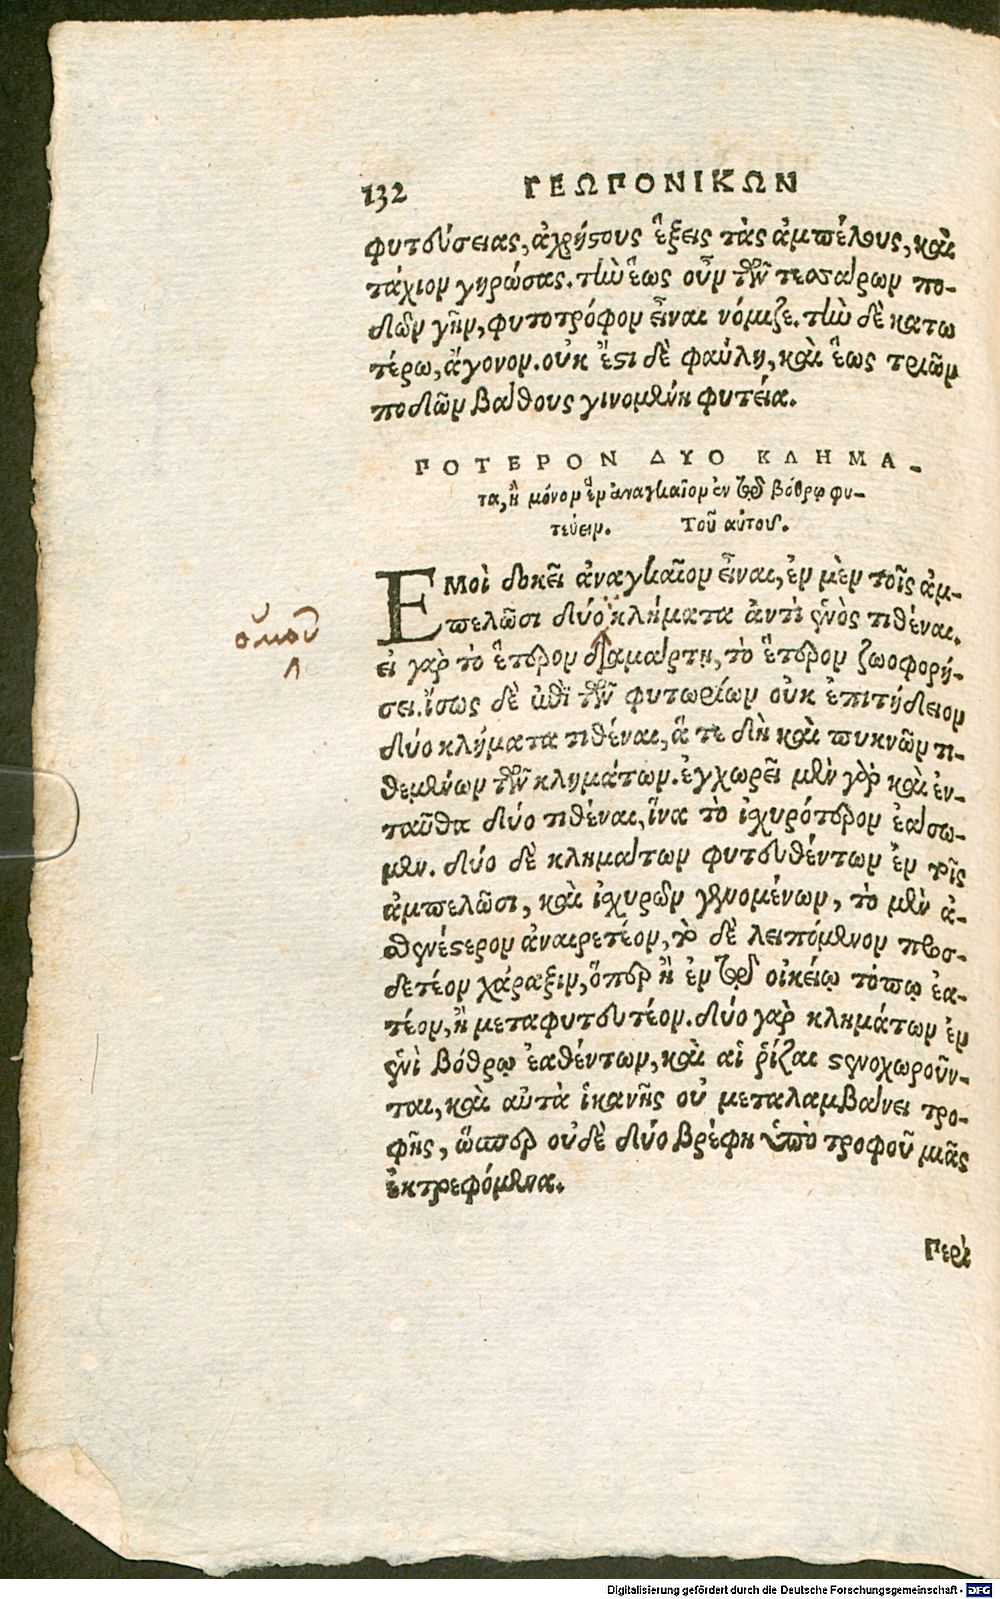 132 ΓΕΩΠΟΝΙΚΩΝ
φυτεύσειας, ἀχρήστους ἕξεις τὰς ἀμπέλους, καὶ
τάχιον γηρώσας. τὴν ἕως οὖν τῶν τεσσάρων πο-
δῶν γῆν, φυτοτρόφον εἶναι νόμιζε. τὴν δὲ κατω
τέρω, ἄγονον. οὐκ ἔστι δὲ φαύλη, καὶ ἕως τριῶν
ποδῶν βάθους γινομένη φυτεία.
ΠΟΤΕΡΟΝ ΔΥΟ ΚΛΗΜΑ-
τα, ἢ μόνον ἓν ἀναγκαῖον ἐν τῷ βόθρῳ φυ-
τεύειν. Τοῦ αὐτοῦ.
ΕΜοὶ δοκεῖ ἀναγκαῖον εἶναι, ἐν μὲν τοῖς ἀμ-
πελῶσι δύο κλήματα ἀντὶ ἑνὸς τιθέναι.
ὁμοῦ
εἰ γὰρ τὸ ἕτερον διαμάρτῃ, τὸ ἕτερον ζωοφορή-
σει. ἴσως δὲ ἐπὶ τῶν φυτωρίων οὐκ ἐπιτήδειον
δύο κλήματα τιθέναι, ἅ τε δὴ καὶ πυκνῶν τι-
θεμένων τῶν κλημάτων. ἐγχωρεῖ μὲν γὰρ καὶ ἐν-
ταῦθα δύο τιθέναι, ἵνα τὸ ἰχυρότερον ἐάσω-
μεν. δύο δὲ κλημάτων φυτευθέντων ἐν τοῖς
ἀμπελῶσι, καὶ ἰχυρῶν γενομένων, τὸ μὲν ἀ-
σθενέστερον ἀναιρετέον, τὸ δὲ λειπόμενον προσ-
δετέον χάραξιν, ὅπερ ἢ ἐν τῷ οἰκείῳ τόπῳ ἐα-
τέον, ἢ μεταφυτευτέον. δύο γὰρ κλημάτων ἐν
ἑνὶ βόθρῳ ἐαθέντων, καὶ αἱ ῥίζαι στενοχωροῦν-
ται, καὶ αὐτὰ ἱκανῆς οὐ μεταλαμβάνει τρο-
φῆς, ὥσπερ οὐδὲ δύο βρέφη ὑπὸ τροφοῦ μιᾶς
ἐκτρεφόμενα.
Περὶ
Digitalisierung gefördert durch die Deutsche Forschungsgemeinschaft - DFG